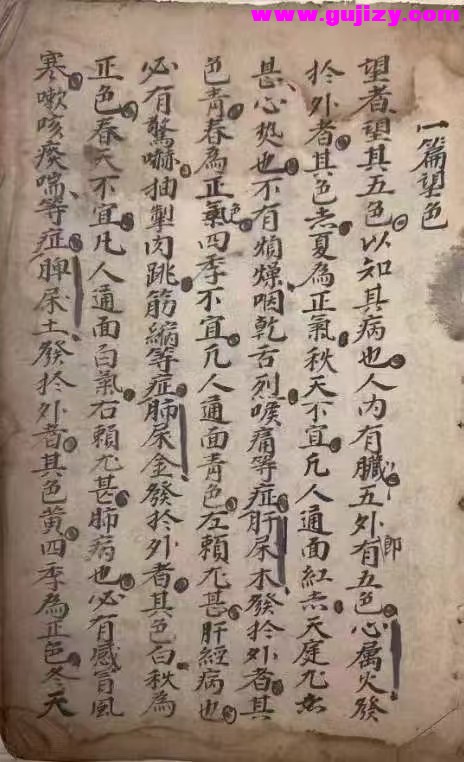 www.gujizy.com
一篇望色
望者望其五色以知其病也人内有臟五外有五色心属火發
即
扵外者其色赤夏為正氣秋天不宜凡人通面紅赤天庭尤
甚心热也不有煩燥咽乾舌烈喉痛等症肝属木發扵外者其
色青春為正氣四季不宜凡人通面青色左頼尤甚肝經病也
色
必有驚嚇抽掣肉跳筋縮等症肺属金發扵外者其色白秋為
正色春天不宜凡人通面白氣右頼尤甚肺病也必有感冒風
寒嗽咳痰喘等症脾属土發扵外者其色黄四季為正色冬天